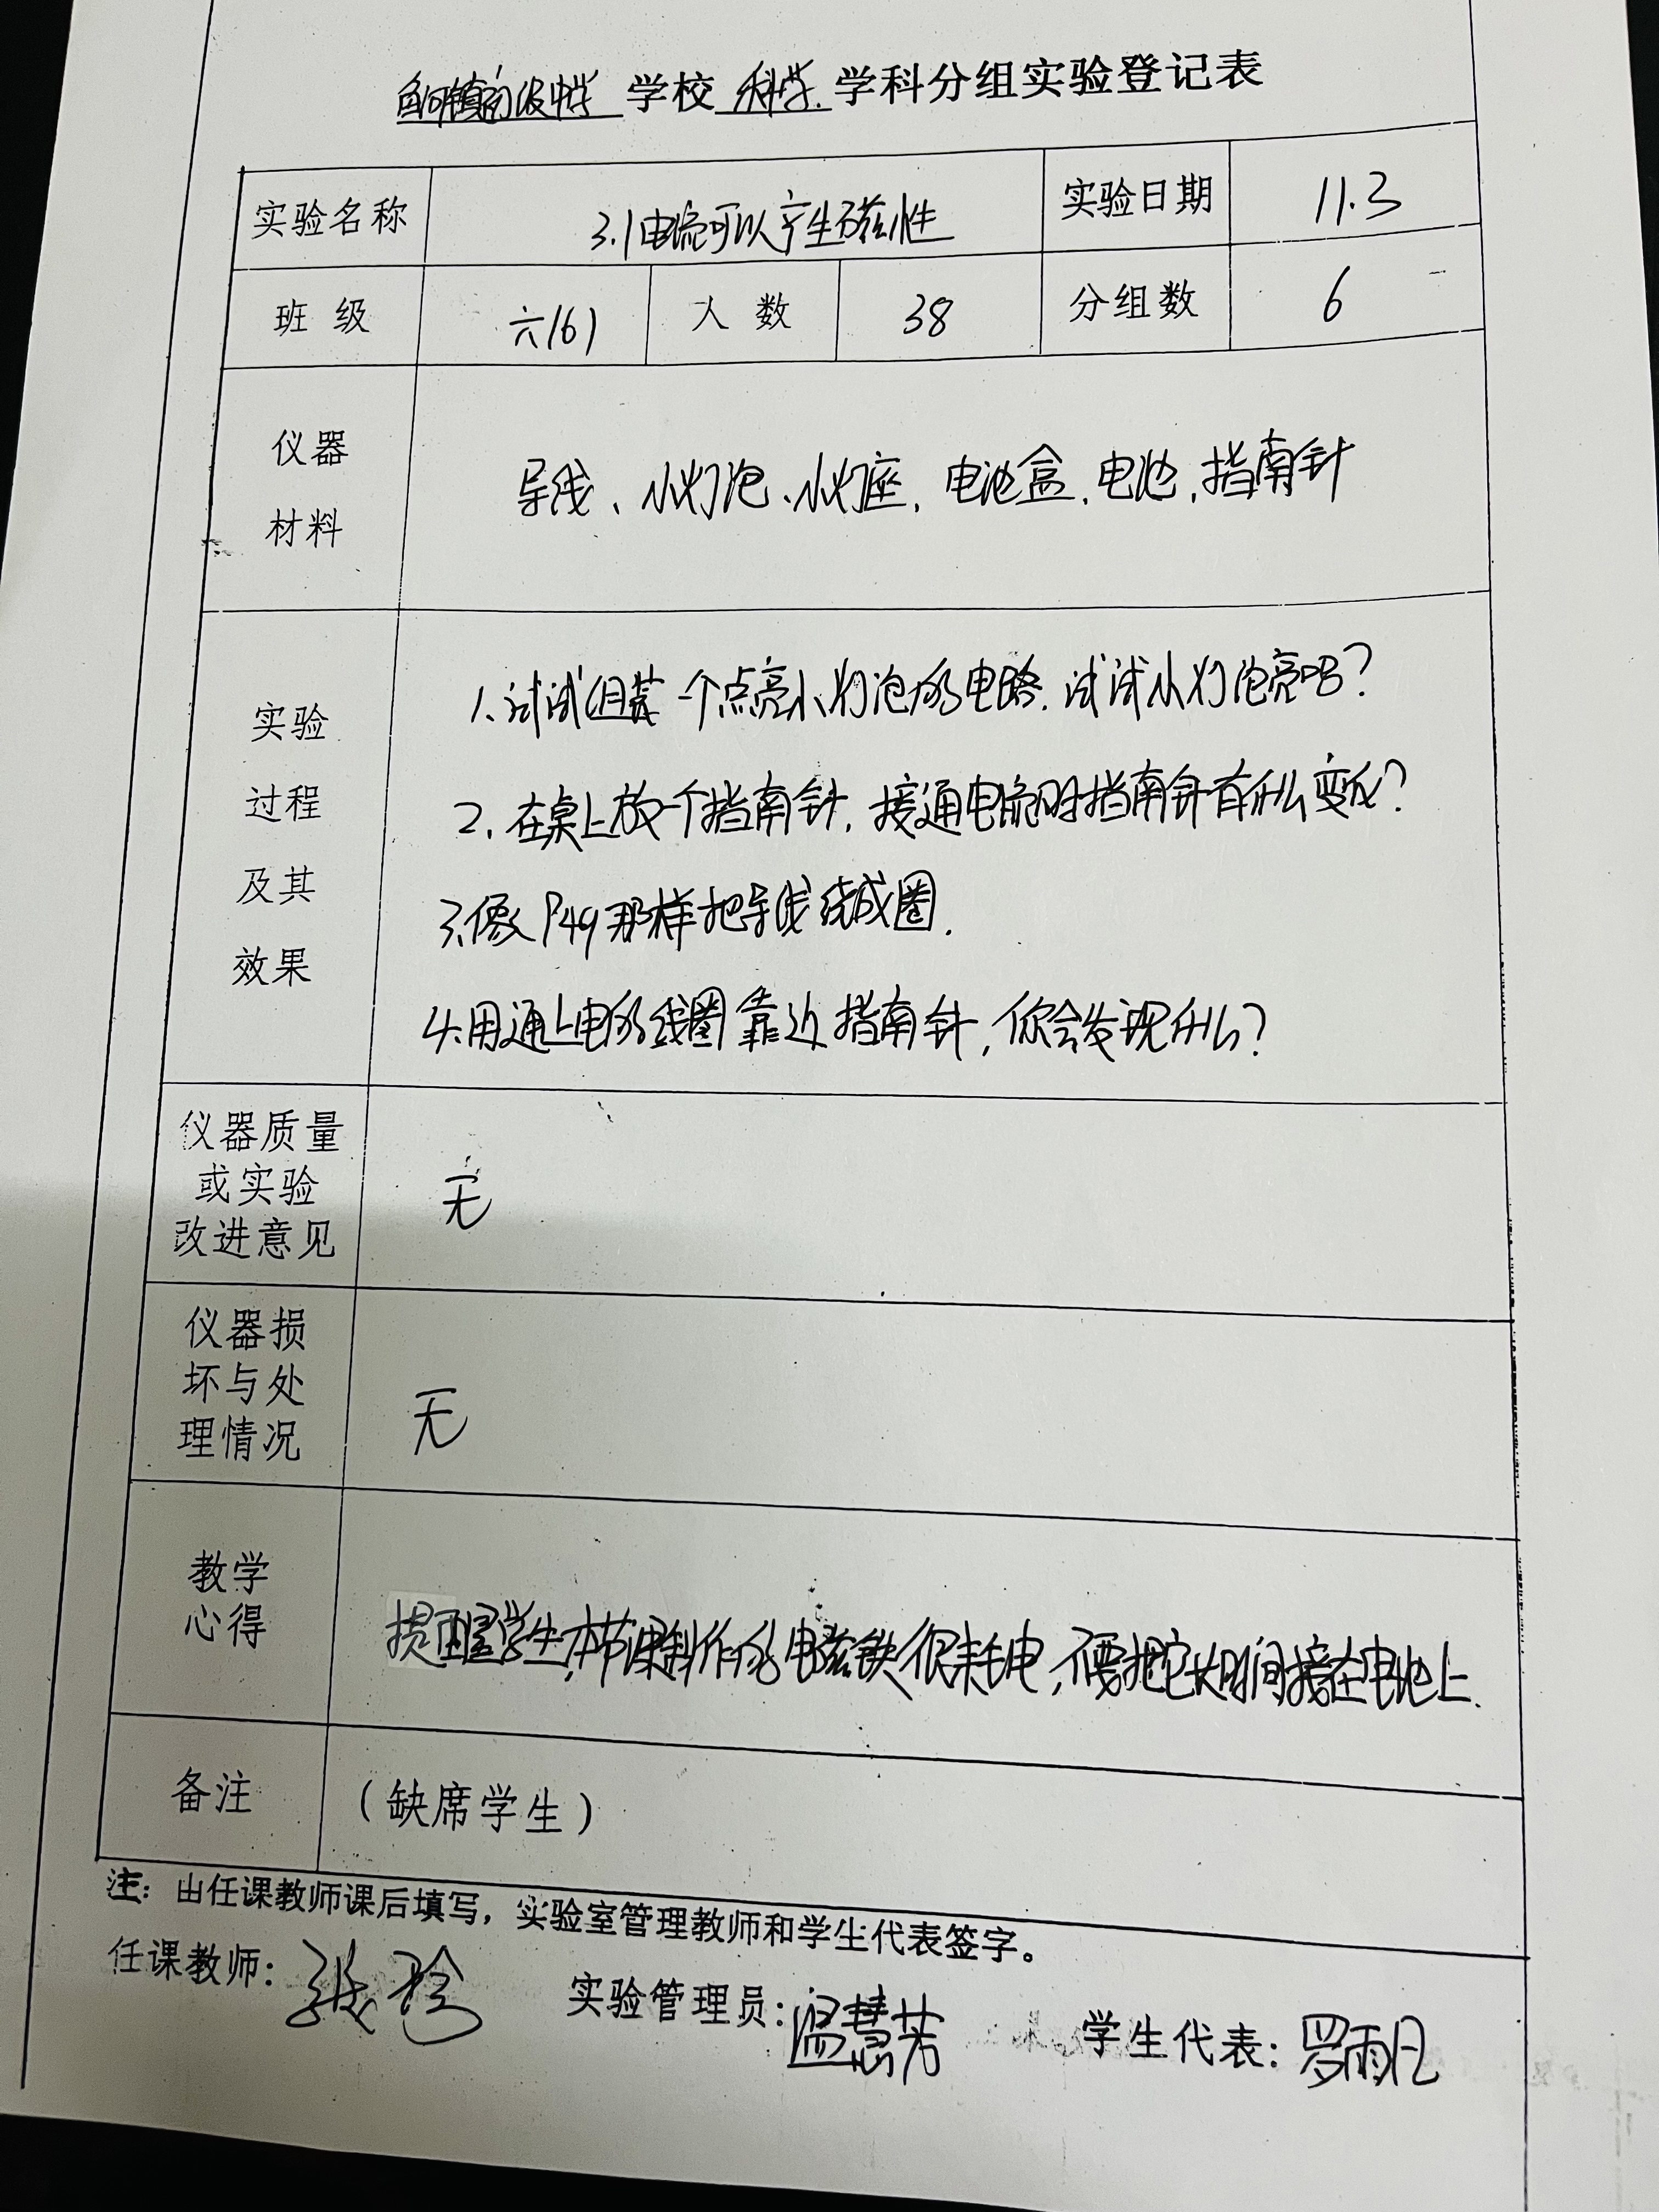 学校 科学 学科分组实验登记表
实验名称 3.1电流可以产生磁性 实验日期 11.3
班级 六(6) 人数 38 分组数 6
仪器
材料
导线、小灯泡、小灯座,电池盒,电池,指南针
实验
过程
及其
效果
1.试试组装一个点亮小灯泡的电路.试试小灯泡亮吗?
2.在桌上放一个指南针,接通电流时指南针有什么变化?
3.像P49那样把导线绕成圈.
4.用通上电的线圈靠近指南针,你会发现什么?
仪器质量
或实验
改进意见
无
仪器损
坏与处
理情况
无
教学
心得
提醒学生,本节课制作的电磁铁很耗电,不要把它长时间接在电池上.
备注 (缺席学生)
注:由任课教师课后填写,实验室管理教师和学生代表签字。
任课教师: 实验管理员:温慧芳 学生代表:罗雨凡